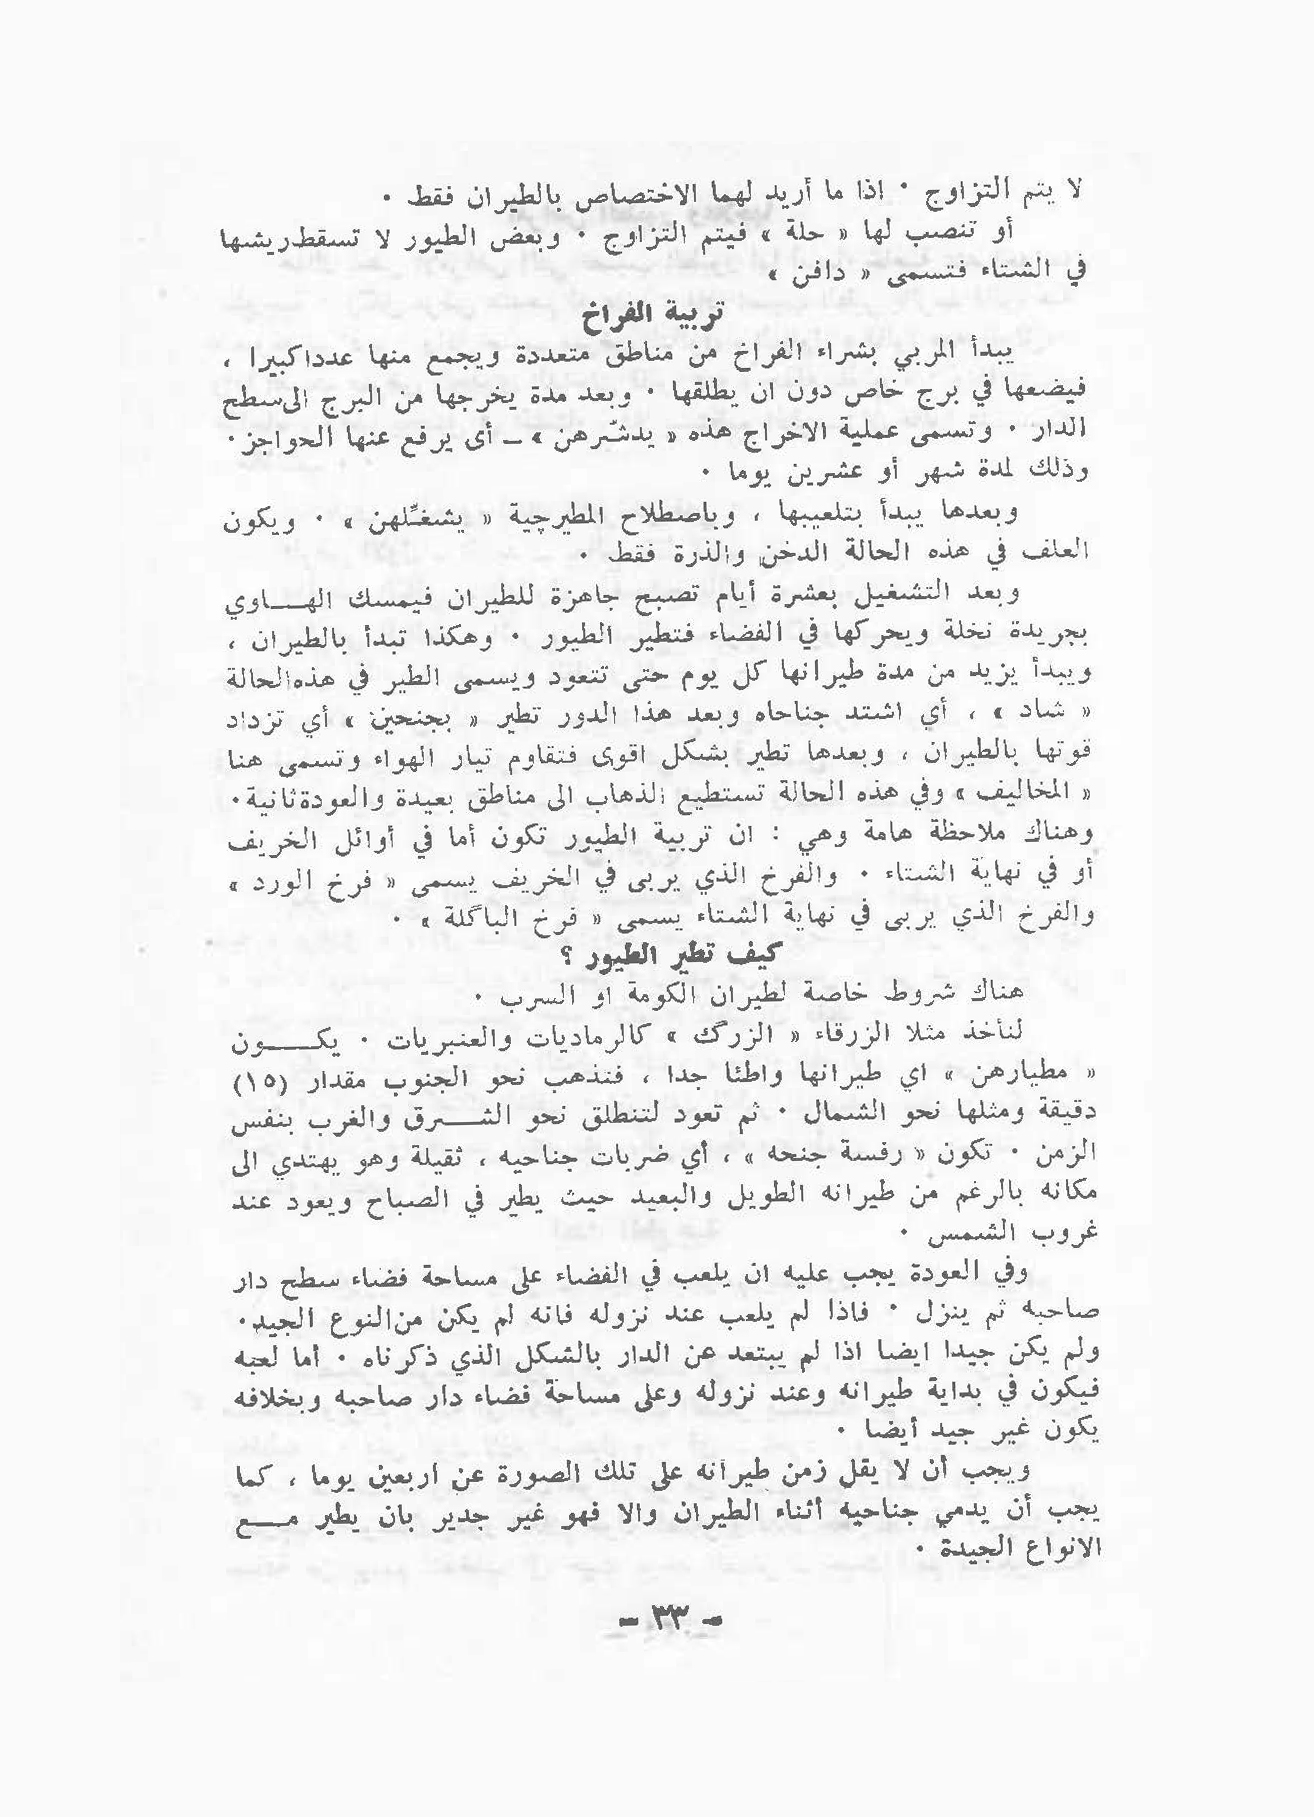 لا يتم التزاوج · اذا ما أريد لهما الاختصاص بالطيران فقط ·
أو تنصب لها « حلة » فيتم التزاوج · وبعض الطيور لا تسقط ريشها
في الشتاء فتسمى « دافن »
تربية الفراخ
يبدأ المربي بشراء الفراخ من مناطق متعددة ويجمع منها عددا كبيرا ،
فيضعها في برج خاص دون ان يطلقها · وبعد مدة يخرجها من البرج الى سطح
الدار · وتسمى عملية الاخراج هذه « يدشّرهن » ــ أى يرفع عنها الحواجز ·
وذلك لمدة شهر أو عشرين يوما ·
وبعدها يبدأ بتلعيبها ، وباصطلاح المطيرچية « يشغّلهن » · ويكون
العلف في هذه الحالة الدخن والذرة فقط ·
وبعد التشغيل بعشرة أيام تصبح جاهزة للطيران فيمسك الهـــاوي
بجريدة نخلة ويحركها في الفضاء فتطير الطيور · وهكذا تبدأ بالطيران ،
ويبدأ يزيد من مدة طيرانها كل يوم حتى تتعود ويسمى الطير في هذه الحالة
« شاد » ، أي اشتد جناحاه وبعد هذا الدور تطير « بجنحين » أي تزداد
قوتها بالطيران ، وبعدها تطير بشكل اقوى فتقاوم تيار الهواء وتسمى هنا
« المخاليف » وفي هذه الحالة تستطيع الذهاب الى مناطق بعيدة والعودة ثانية ·
وهناك ملاحظة هامة وهي : ان تربية الطيور تكون أما في أوائل الخريف
أو في نهاية الشتاء · والفرخ الذي يربى في الخريف يسمى « فرخ الورد »
والفرخ الذي يربى في نهاية الشتاء يسمى « فرخ الباگلة » ·
كيف تطير الطيور ؟
هناك شروط خاصة لطيران الكومة او السرب ·
لنأخذ مثلا الزرقاء « الزرگ » كالرماديات والعنبريات · يكـــون
« مطيارهن » اي طيرانها واطئا جدا ، فتذهب نحو الجنوب مقدار (١٥)
دقيقة ومثلها نحو الشمال · ثم تعود لتنطلق نحو الشـــرق والغرب بنفس
الزمن · تكون « رفسة جنحه » ، أي ضربات جناحيه ، ثقيلة وهو يهتدي الى
مكانه بالرغم من طيرانه الطويل والبعيد حيث يطير في الصباح ويعود عند
غروب الشمس ·
وفي العودة يجب عليه ان يلعب في الفضاء على مساحة فضاء سطح دار
صاحبه ثم ينزل · فاذا لم يلعب عند نزوله فانه لم يكن من النوع الجيد ·
ولم يكن جيدا ايضا اذا لم يبتعد عن الدار بالشكل الذي ذكرناه · أما لعبه
فيكون في بداية طيرانه وعند نزوله وعلى مساحة فضاء دار صاحبه وبخلافه
يكون غير جيد أيضا ·
ويجب أن لا يقل زمن طيرانه على تلك الصورة عن اربعين يوما ، كما
يجب أن يدمي جناحيه أثناء الطيران والا فهو غير جدير بان يطير مـــع
الانواع الجيدة ·
- ٣٣ -